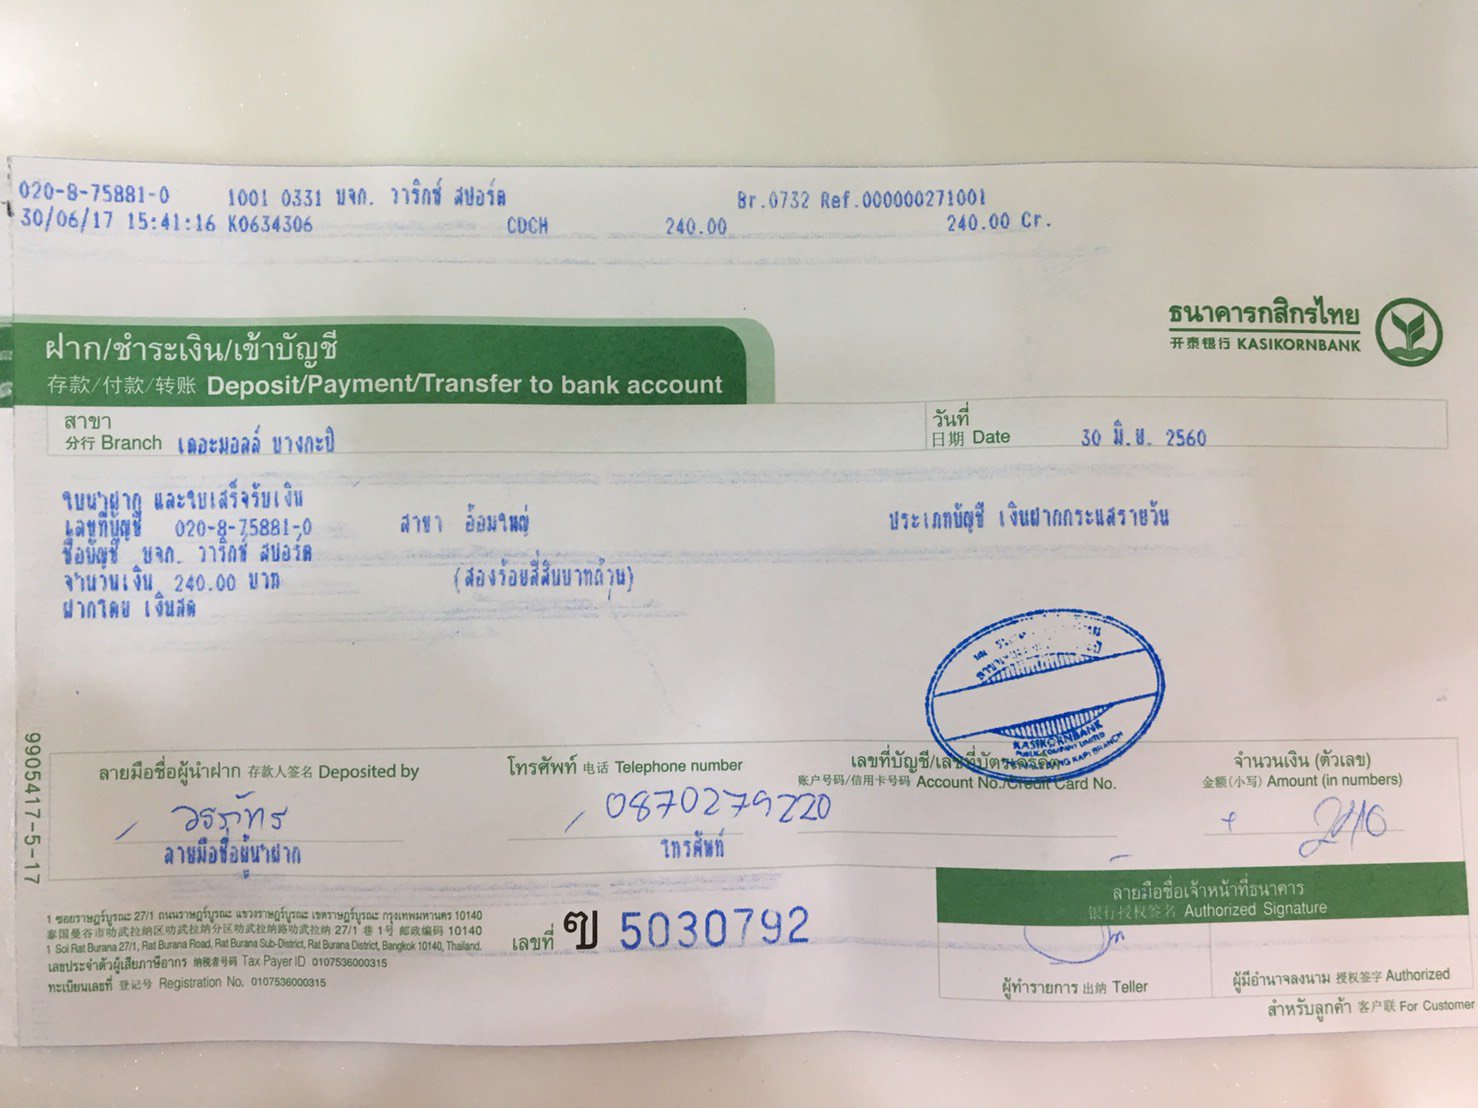 020-8-75881-0 1001 0331 บจก. วาริกซ์ สปอร์ต Br.0732 Ref.000000271001
30/06/17 15:41:16 K0634306 CDCH 240.00 240.00 Cr.
ธนาคารกสิกรไทย
开泰银行 KASIKORNBANK
ฝาก/ชำระเงิน/เข้าบัญชี
存款/付款/转账 Deposit/Payment/Transfer to bank account
สาขา
分行 Branch เดอะมอลล์ บางกะปิ
วันที่
日期 Date 30 มิ.ย. 2560
ใบนำฝาก และใบเสร็จรับเงิน
เลขที่บัญชี 020-8-75881-0 สาขา อ้อมใหญ่ ประเภทบัญชี เงินฝากกระแสรายวัน
ชื่อบัญชี บจก. วาริกซ์ สปอร์ต
จำนวนเงิน 240.00 บาท (สองร้อยสี่สิบบาทถ้วน)
ฝากโดย เงินสด
KASIKORNBANK
PUBLIC COMPANY LIMITED
BANG KAPI BRANCH
9905417-5-17
ลายมือชื่อผู้นำฝาก 存款人签名 Deposited by
วรภัทร
ลายมือชื่อผู้นำฝาก
โทรศัพท์ 电话 Telephone number
0870279220
โทรศัพท์
เลขที่บัญชี/เลขที่บัตรเครดิต
账户号码/信用卡号码 Account No./Credit Card No.
จำนวนเงิน (ตัวเลข)
金额(小写) Amount (in numbers)
240
ลายมือชื่อเจ้าหน้าที่ธนาคาร
银行授权签名 Authorized Signature
1 ซอยราษฎร์บูรณะ 27/1 ถนนราษฎร์บูรณะ แขวงราษฎร์บูรณะ เขตราษฎร์บูรณะ กรุงเทพมหานคร 10140
泰国曼谷市叻武拉纳区叻武拉纳分区叻武拉纳路叻武拉纳 27/1 巷 1号 邮政编码 10140
1 Soi Rat Burana 27/1, Rat Burana Road, Rat Burana Sub-District, Rat Burana District, Bangkok 10140, Thailand.
เลขประจำตัวผู้เสียภาษีอากร 纳税者号码 Tax Payer ID 0107536000315
ทะเบียนเลขที่ 登记号 Registration No. 0107536000315
เลขที่ ฃ 5030792
ผู้ทำรายการ 出纳 Teller
ผู้มีอำนาจลงนาม 授权签字 Authorized
สำหรับลูกค้า 客户联 For Customer